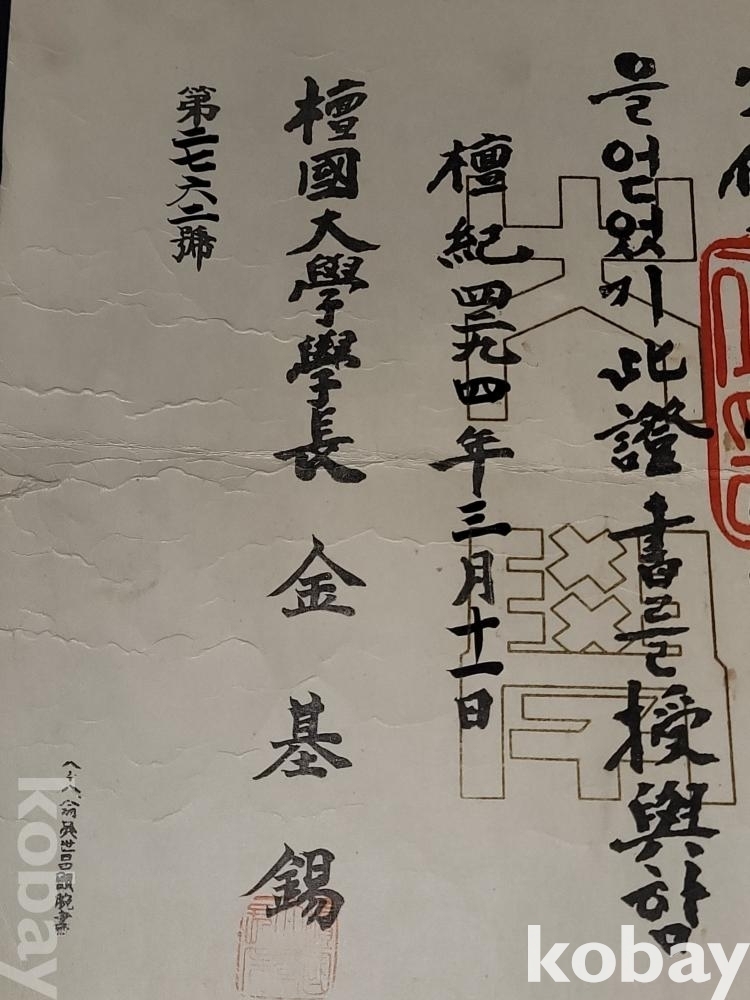 을얻었기此證書를授與함
檀紀四二九四年三月十一日
檀國大學學長 金基錫
第二七六二號
翁吳世昌腕書
大學
kobay
kobay